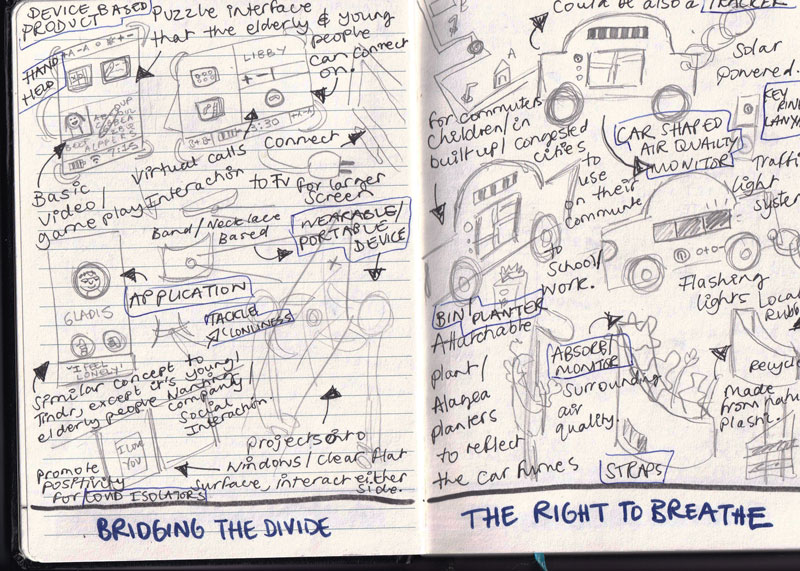 DEVICE BASED
PRODUCT
Puzzle interface
that the elderly & young
people
can connect
on.
HAND
HELD
LIBBY
5:30
9:15
Virtual calls
Interaction
Connect
to TV for larger
screen
Basic
video/
game play
Band/Necklace
Based
WEARABLE/
PORTABLE
DEVICE
APPLICATION
GLADIS
"I FEEL
LONELY!"
TACKLE
LONLINESS
Similar concept to
Tindr, except it's young/
elderly people wanting
company/
Social
Interaction.
I LOVE
YOU
projects onto
windows/clear flat
surface, interact either
side.
Promote
positivity
for COVID ISOLATORS
BRIDGING THE DIVIDE
Could be also a TRACKER
A
B
Solar
powered.
For commuters
Children/in
built up/congested
cities
CAR SHAPED
AIR QUALITY
MONITOR
KEY
RING
LANYA
Traffic
light
system
to
use
on their
commute
to
School/
work.
Flashing
lights
Local
Rubb
BIN PLANTER
Attatchable
plant/
Alagea
planters
to reflect
the car fumes
ABSORB/
MONITOR
Surrounding
air
quality.
Recycle
made
from natu
plastic.
STRAPS
THE RIGHT TO BREATHE